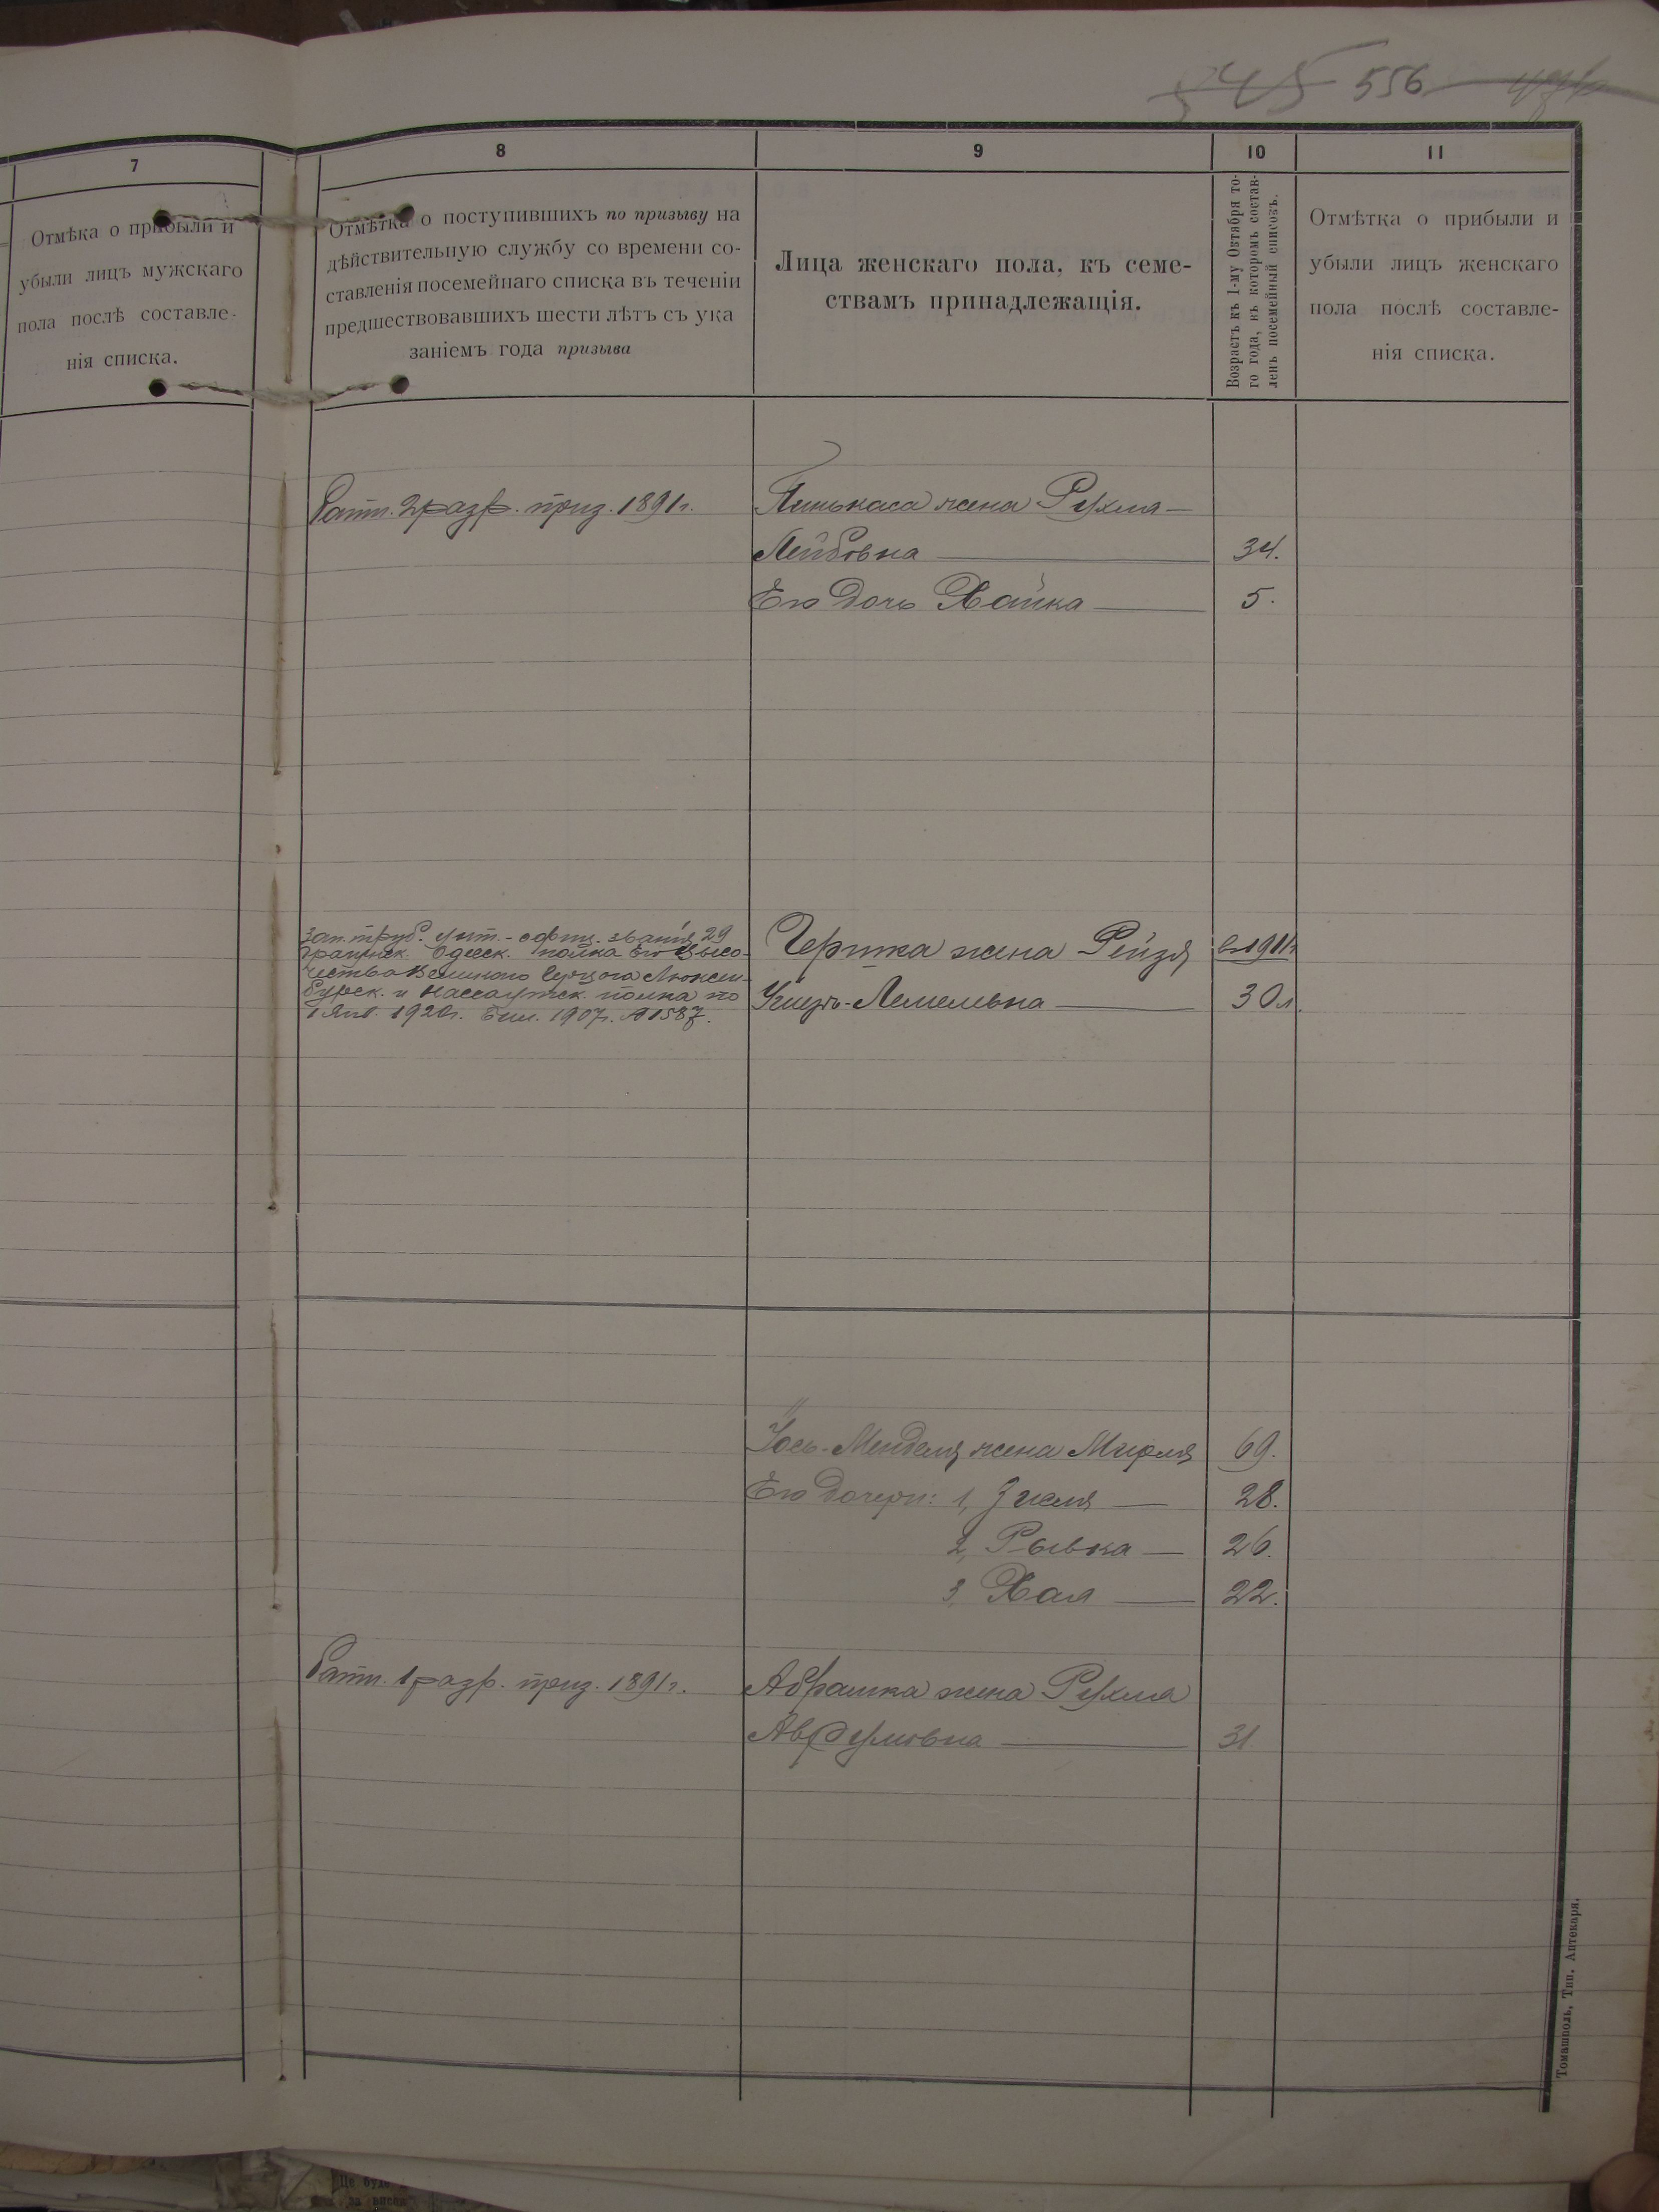 545 556
7
8
9
10
11
Отмѣка о прибыли и
убыли лицъ мужскаго
пола послѣ составле-
нія списка.
Отмѣтка о поступившихъ по призыву на
дѣйствительную службу со времени со-
ставленія посемейнаго списка въ теченіи
предшествовавшихъ шести лѣтъ съ ука
заніемъ года призыва
Лица женскаго пола, къ семе-
ствамъ принадлежащія.
Возрастъ къ 1-му Октября то-
го года, въ которомъ состав-
ленъ посемейный списокъ.
Отмѣтка о прибыли и
убыли лицъ женскаго
пола послѣ составле-
нія списка.
Ратн. 2 разр. приз. 1891 г.
Пинькаса жена Рухля
Лейбовна 34.
Его дочь Хайка 5.
Зап. труб. унт.-офиц. званія 29
драгунск. Одесск. полка Его Высо-
чества Великаго Герцога Люксем-
бурск. и Нассаутск. полка по
1 Янв. 1920 г. Бил. 1907 г. № 1587.
Гершка жена Рейзя въ 1911 г.
Лемельвна 30 л.
Іось-Менделя жена Мирля 69.
Его дочери: 1, 28.
2, Рывка 26.
3, Хая 22.
Ратн. 1 разр. приз. 1891 г.
Абрашка жена Рухля
31
Томашполь, Тип. Аптекаря.